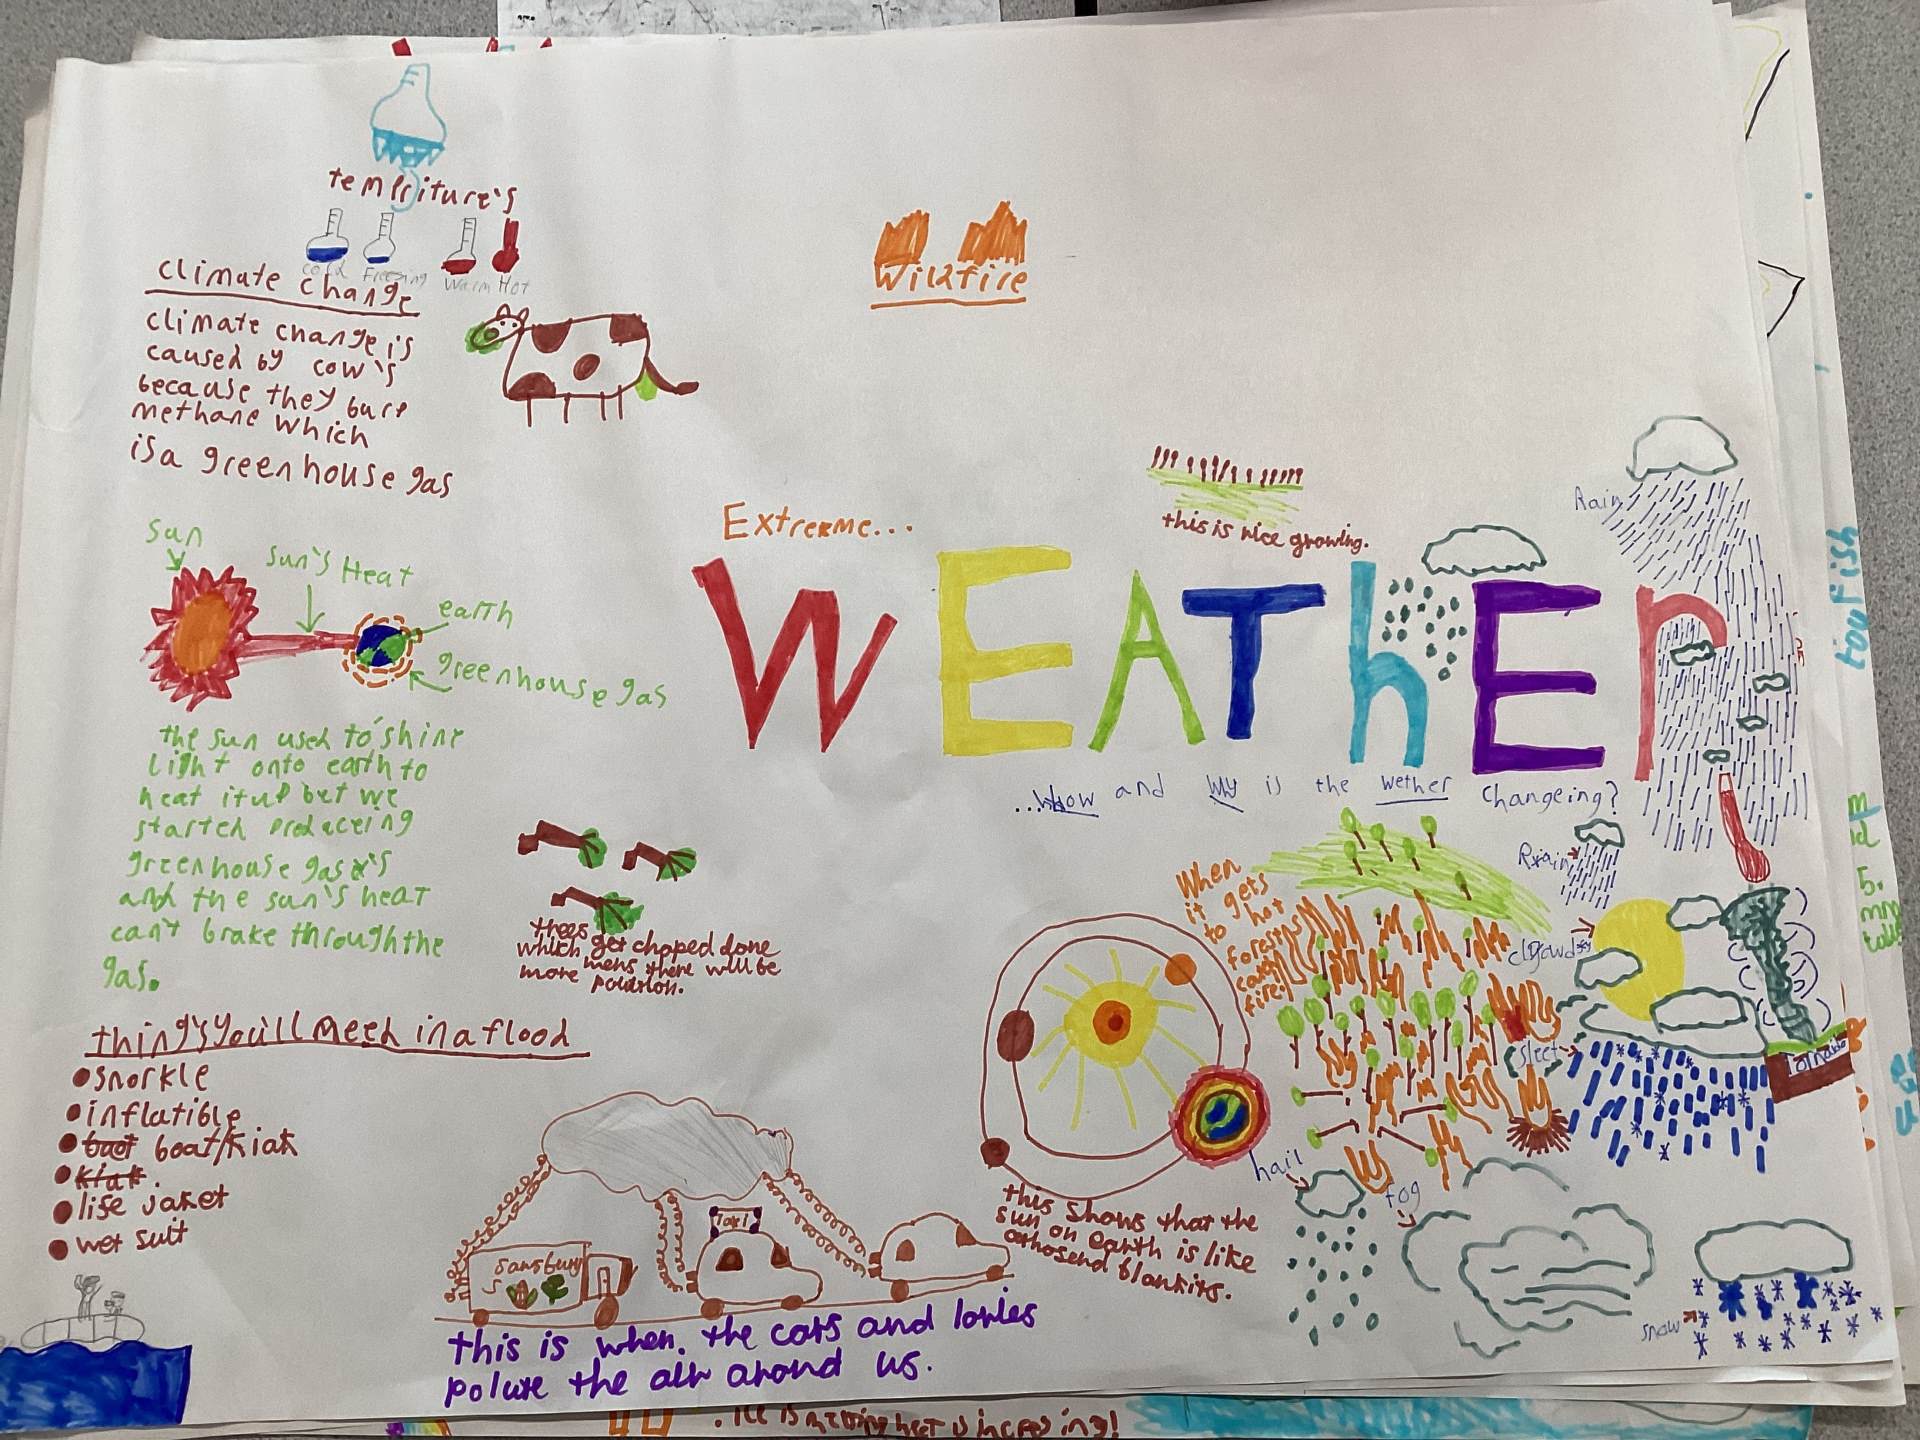 tempriture's
cold Freezing Warm Hot
climate change
climate change is
caused by cow's
because they burp
methane which
is a greenhouse gas
Wildfire
Extreme...
WEAThEr
...how and why is the wether changeing?
this is rice growing.
Rain
sun
sun's Heat
earth
greenhouse gas
the sun used to shine
light onto earth to
heat it up but we
started produceing
greenhouse gase's
and the sun's heat
can't brake through the
gas.
trees
which get chopped done
more mens there will be
polution.
thing's you'll need in a flood
snorkle
inflatible
boat boat/kiak
kiak.
life jaket
wet suit
Sansbury
s
Taxi
this is when. the cars and lories
polute the air around us.
this shows that the
sun on earth is like
athosend blankits.
When
it gets
to hot
forests
catch
fire!
Rain
clowds
sleet
Tornaido
hail
fog
snow
toufish
5.
. Ice is melting heat is increasing!